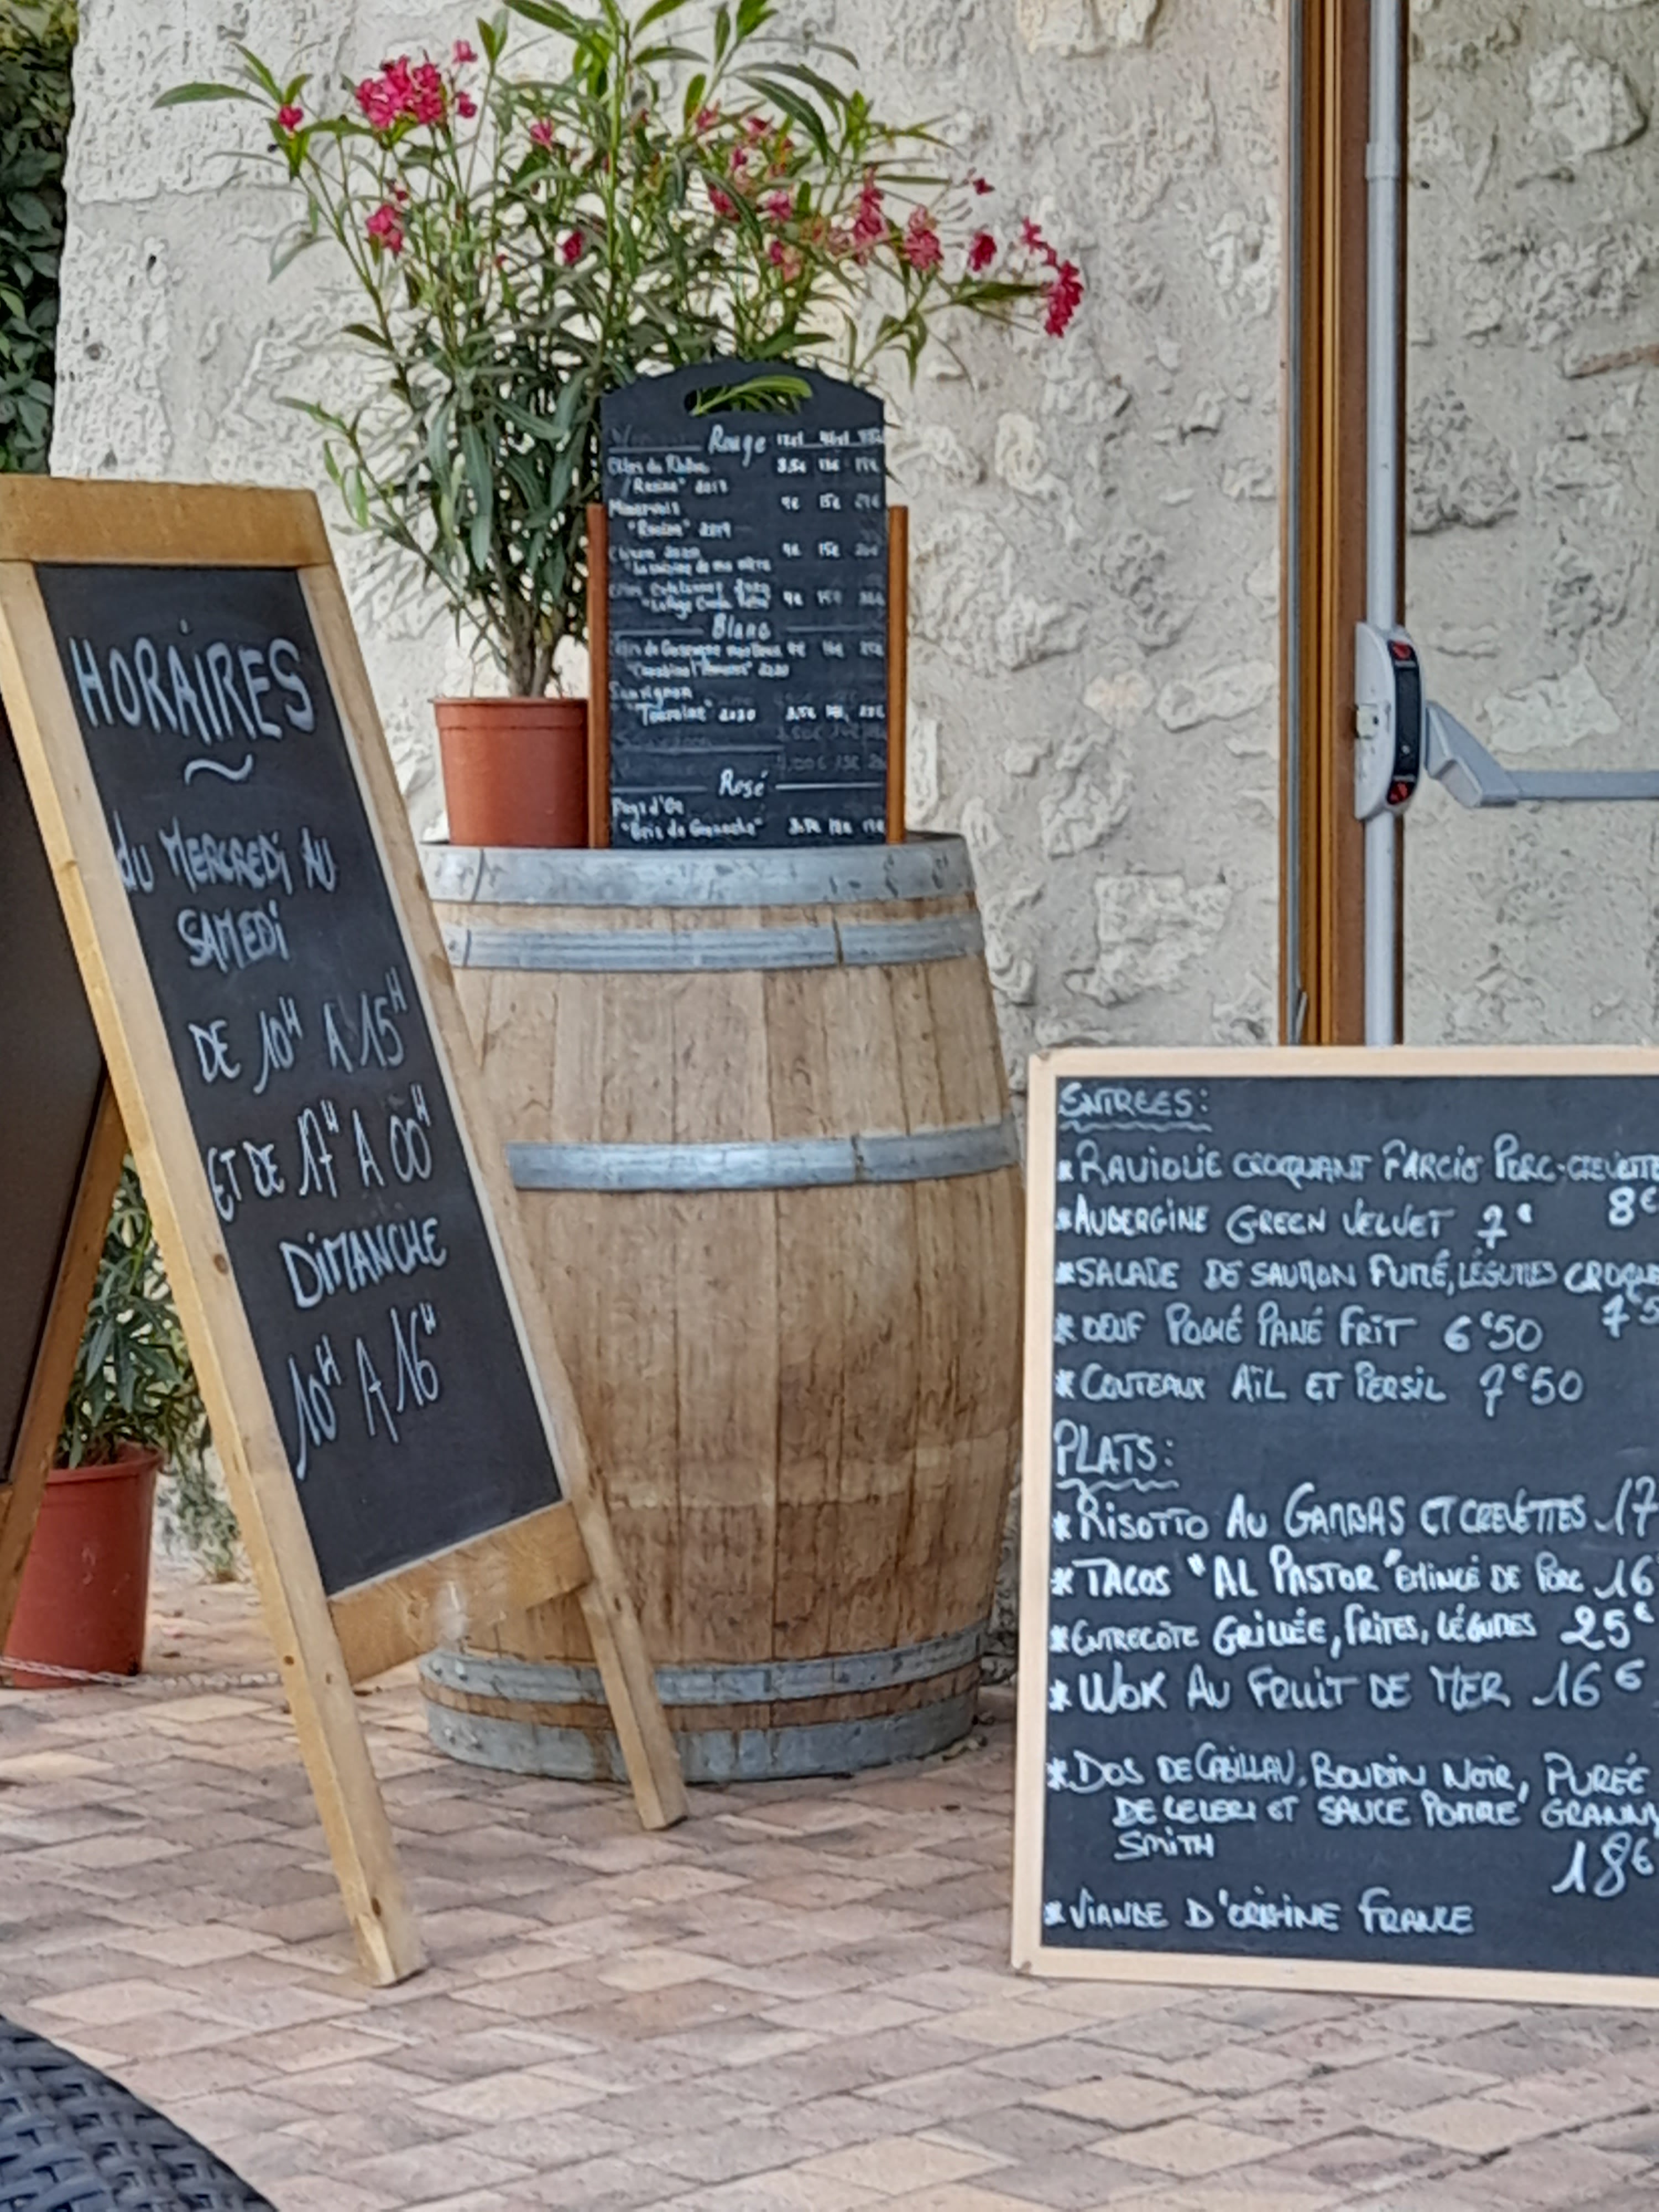 HORAIRES
~
du MERCREDI AU
SAMEDI
DE 10H A 15H
ET DE 17H A 00H
DIMANCHE
10H A 16H
Rouge 12cl 46cl
Côtes du Rhône 3,5€ 13€ 19€
2019
Minervois 4€ 15€
"Racine" 2019
Chinon 2020 4€ 15€
"La cuisine de ma mère
4€ 15€
Blanc
Côtes de Gascogne 4€
2020
Sauvignon
"Touraine" 2020 3,5€
Rosé
Pays d'Oc
"Gris de Grenache" 3,5€
ENTREES:
*RAVIOLIE CROQUANT FARCIE PORC-CREVETTE
8€
*AUBERGINE GREEN VELVET 7€
*SALADE DE SAUMON FUMÉ, LÉGUMES CROQUE
7€5
*OEUF POCHÉ PANÉ FRIT 6€50
*COUTEAUX AÏL ET PERSIL 7€50
PLATS:
*RISOTTO AU GAMBAS ET CREVETTES 17
*TACOS "AL PASTOR" EMINCÉ DE PORC 16
*ENTRECOTE GRILLÉE, FRITES, LÉGUMES 25€
*WOK AU FRUIT DE MER 16€
*DOS DE CABILLAU, BOUDIN NOIR, PURÉE
DE CELERI ET SAUCE POMME GRANNY
SMITH
18€
*VIANDE D'ORIGINE FRANCE